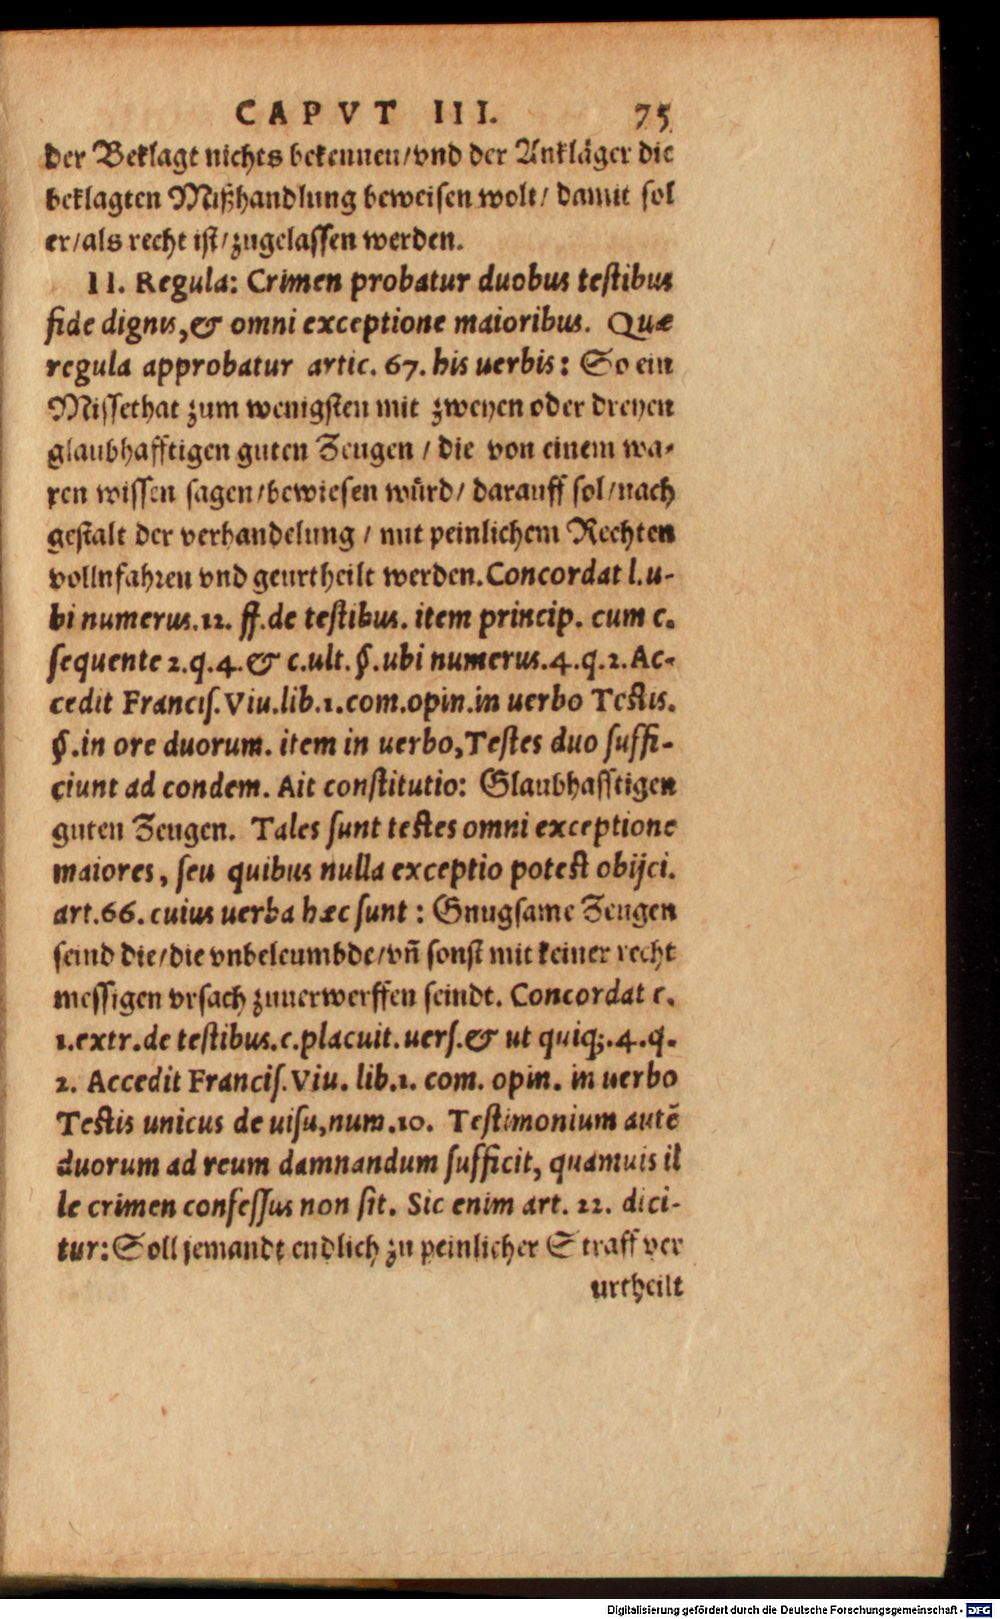 CAPVT III. 75
der Beklagt nichts bekennen/vnd der Ankläger die
beklagten Mißhandlung beweisen wolt/ damit sol
er/als recht ist/zugelassen werden.
II. Regula: Crimen probatur duobus testibus
fide dignis,& omni exceptione maioribus. Quæ
regula approbatur artic. 67. his uerbis: So ein
Missethat zum wenigsten mit zweyen oder dreyen
glaubhafftigen guten Zeugen / die von einem wa-
ren wissen sagen/bewiesen würd/ darauff sol/nach
gestalt der verhandelung / mit peinlichem Rechten
vollnfahren vnd geurtheilt werden. Concordat l.u-
bi numerus.12. ff.de testibus. item princip. cum c.
sequente 2.q.4.& c.ult. §.ubi numerus.4.q.2.Ac-
cedit Francis.Viu.lib.1.com.opin.in uerbo Testis.
§.in ore duorum. item in uerbo,Testes duo suffi-
ciunt ad condem. Ait constitutio: Glaubhafftigen
guten Zeugen. Tales sunt testes omni exceptione
maiores, seu quibus nulla exceptio potest obijci.
art.66. cuius uerba hæc sunt: Gnugsame Zeugen
seind die/die vnbeleumbde/vñ sonst mit keiner recht
messigen vrsach zuuerwerffen seindt. Concordat c.
1.extr.de testibus.c.placuit.uers.& ut quiq;.4.q.
2. Accedit Francis.Viu. lib.1. com. opin. in uerbo
Testis unicus de uisu,num.10. Testimonium autē
duorum ad reum damnandum sufficit, quamuis il
le crimen confessus non sit. Sic enim art. 22. dici-
tur: Soll jemandt endlich zu peinlicher Straff ver
urtheilt
Digitalisierung gefördert durch die Deutsche Forschungsgemeinschaft - DFG